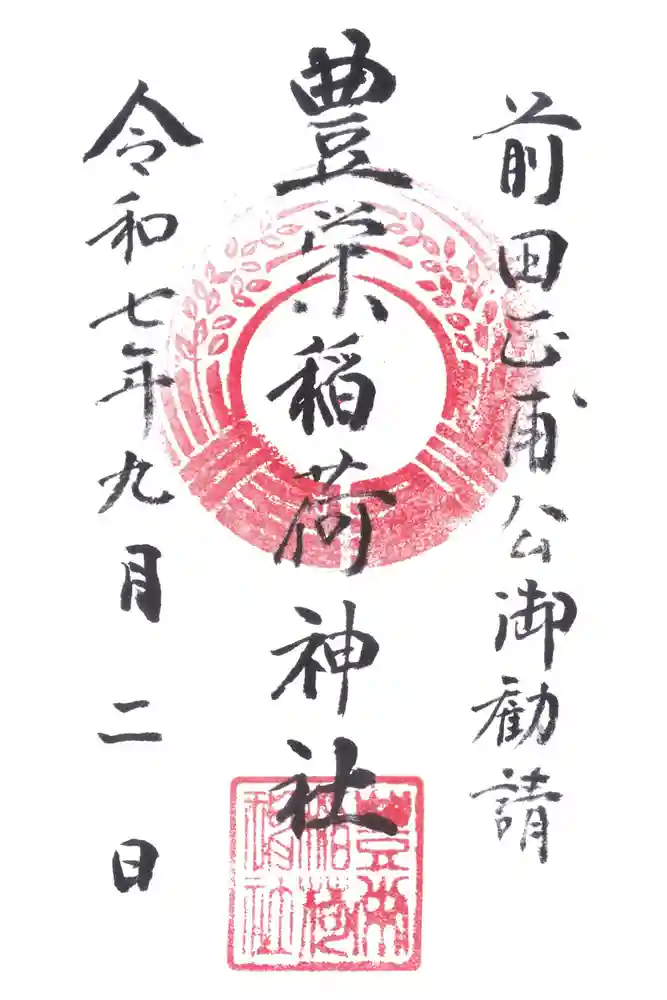 前田正甫公御勧請
豊栄稲荷神社
令和七年九月二日
豊栄稲荷神社